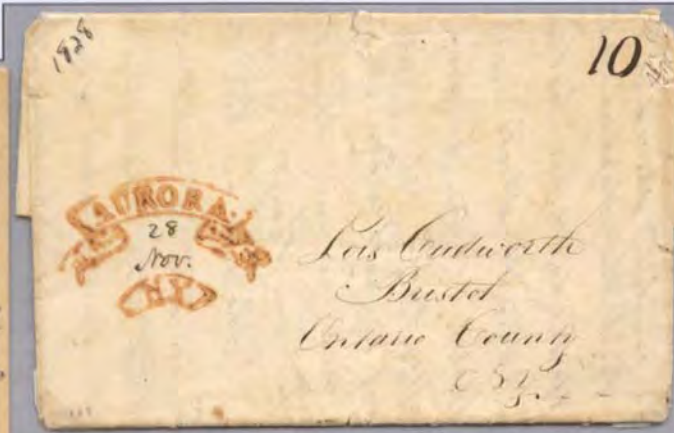 1828
10
AURORA
28
Nov.
N.Y.
Lois Cudworth
Bristol
Ontario County
N.Y.